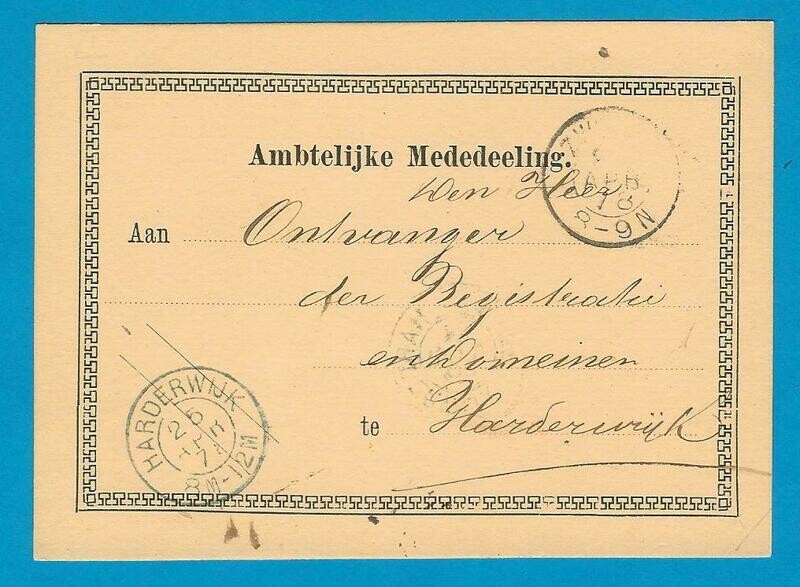 Ambtelijke Mededeeling.
APR
18
8-9N
den Heer
Aan Ontvanger
der Registratie
en Domeinen
te Harderwijk
HARDERWIJK
25
8M-12M